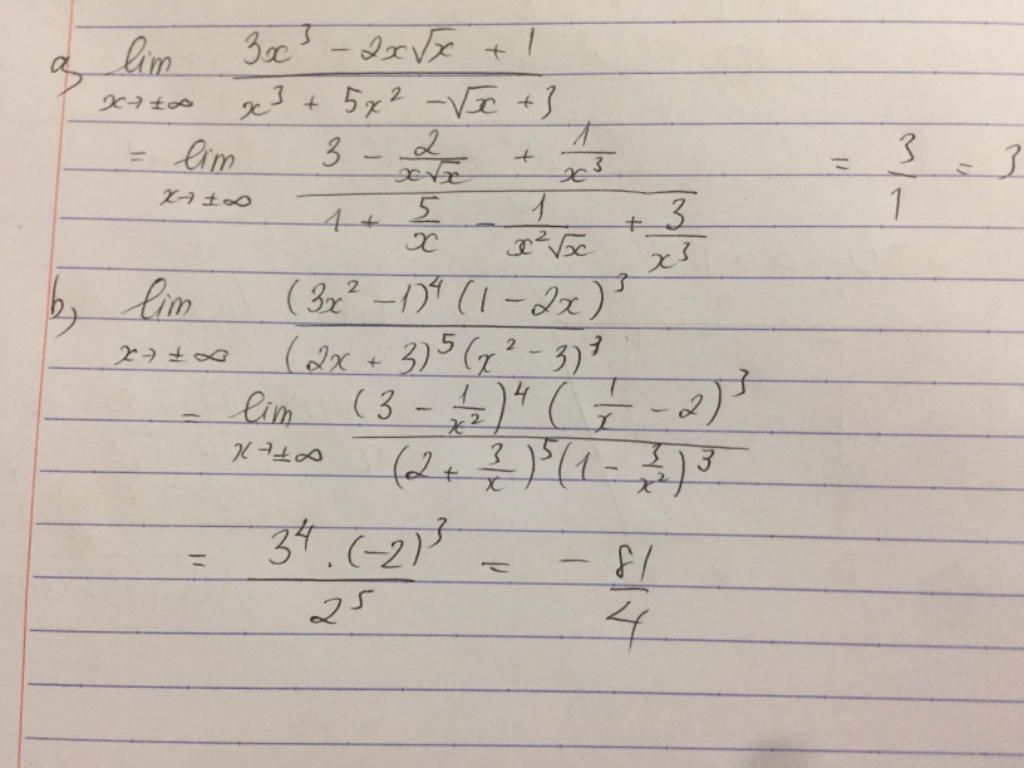 a) lim x→±∞ (3x³ − 2x√x + 1) / (x³ + 5x² − √x + 3)
= lim x→±∞ (3 − 2/(x√x) + 1/x³) / (1 + 5/x − 1/(x²√x) + 3/x³) = 3/1 = 3
b) lim x→±∞ (3x² − 1)⁴ (1 − 2x)³ / (2x + 3)⁵ (x² − 3)³
= lim x→±∞ (3 − 1/x²)⁴ (1/x − 2)³ / (2 + 3/x)⁵ (1 − 3/x²)³
= 3⁴ . (−2)³ / 2⁵ = − 81/4